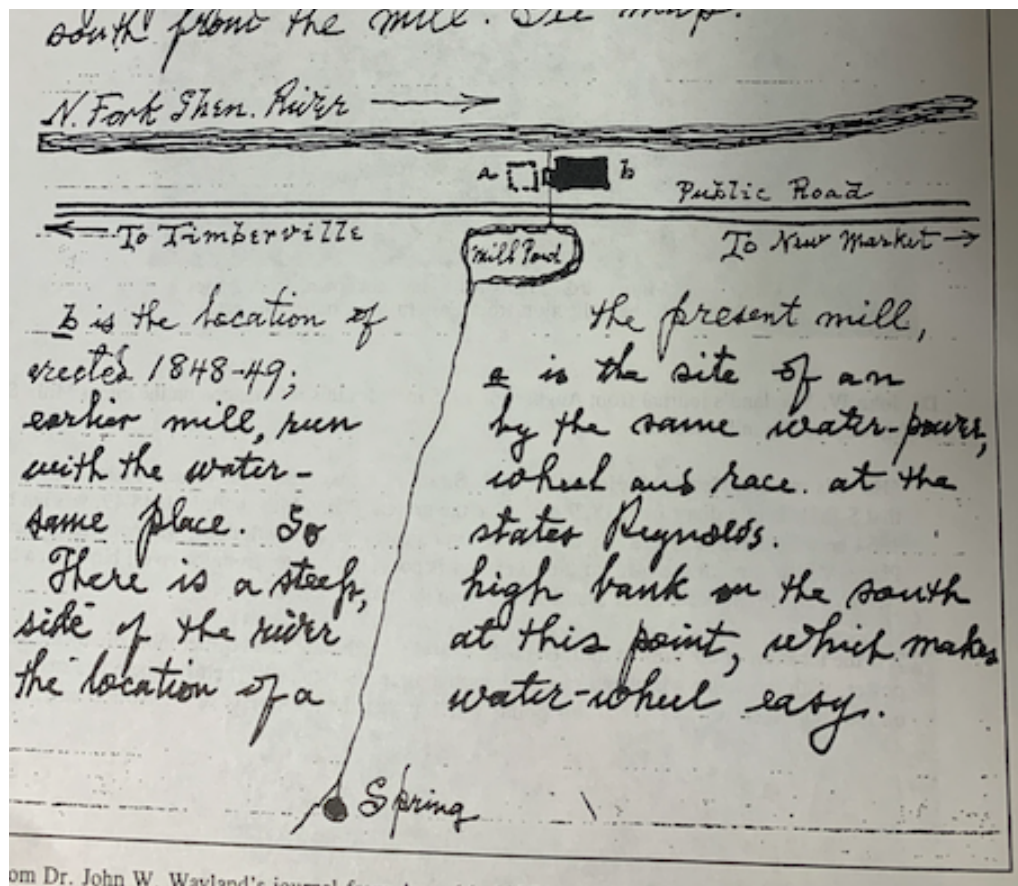 south from the mill. See map.
N. Fork Shen. River
a b
Public Road
To Timberville
To New Market
Mill Pond
b is the location of the present mill,
erected 1848-49; a is the site of an
earlier mill, run by the same water-power,
with the water-wheel and race. at the
same place. So states Reynolds.
There is a steep, high bank on the south
side of the river at this point, which makes
the location of a water-wheel easy.
Spring
om Dr. John W. Wayland's journal